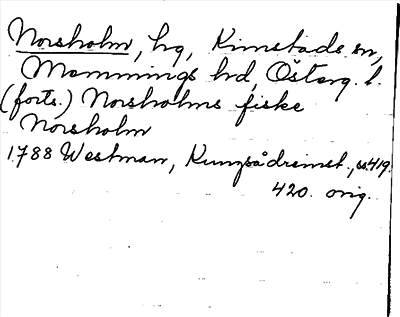 Norsholm, hg, Kimstads sn,
Memmings hd, Österg. l.
(forts.) Norsholms fiske
Norsholm
1788 Westman, Kungsådremst., s. 419.
420. orig.